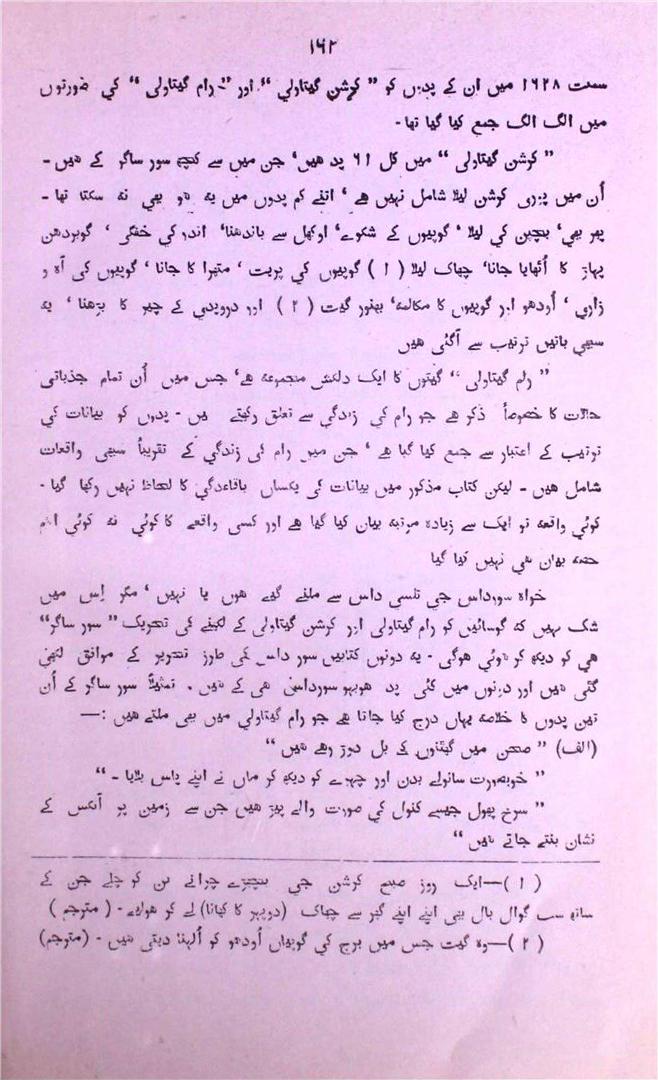 ۱۶۲
سمت ۱۶۲۸ میں ان کے پدوں کو ” کرشن گیتاولی “ اور ” رام گیتاولی “ کی صورتوں
میں الگ الگ جمع کیا گیا تھا -
” کرشن گیتاولی “ میں کل ۶۱ پد ھیں‘ جن میں سے کچھ سور ساگر کے ھیں -
اُن میں پوری کرشن لیلا شامل نہیں ھے ‘ اتنے کم پدوں میں یہ ھو بھی نہ سکتا تھا -
پھر بھی‘ بچپن کی لیلا ‘ گوپیوں کے شکوے‘ اوکھل سے باندھنا‘ اندر کی خفگی ‘ گوبردھن
پہاڑ کا اُٹھایا جانا‘ چھاک لیلا ( ۱ ) گوپیوں کی پریت ‘ متھرا کا جانا ‘ گوپیوں کی آہ و
زاری ‘ اُودھو اور گوپیوں کا مکالمہ‘ بھنور گیت ( ۲ ) اور دروپدی کے چیر کا بڑھنا ‘ یہ
سبھی باتیں ترتیب سے آگئی ھیں
” رام گیتاولی “ گیتوں کا ایک دلکش مجموعہ ھے‘ جس میں اُن تمام جذباتی
حالات کا خصوصاً ذکر ھے جو رام کی زندگی سے تعلق رکھتے ھیں - پدوں کو بیانات کی
ترتیب کے اعتبار سے جمع کیا گیا ھے ‘ جن میں رام کی زندگی کے تقریباً سبھی واقعات
شامل ھیں - لیکن کتاب مذکور میں بیانات کی یکساں باقاعدگی کا لحاظ نہیں رکھا گیا -
کوئی واقعہ تو ایک سے زیادہ مرتبہ بیان کیا گیا ھے اور کسی واقعے کا کوئی نہ کوئی اھم
حصہ بیان ھی نہیں کیا گیا
خواہ سورداس جی تلسی داس سے ملنے گیے ھوں یا نہیں ‘ مگر اِس میں
شک نہیں کہ گوسائیں کو رام گیتاولی اور کرشن گیتاولی کے لکھنے کی تحریک ” سور ساگر“
ھی کو دیکھ کر ھوئی ھوگی - یہ دونوں کتابیں سور داس کی طرز تحریر کے موافق لکھی
گئی ھیں اور دونوں میں کئی پد ھوبہو سورداس ھی کے ھیں . تمثیلاً سور ساگر کے اُن
تین پدوں کا خلاصہ یہاں درج کیا جاتا ھے جو رام گیتاولی میں بھی ملتے ھیں :—
(الف) ” صحن میں گھٹنوں کے بل دوڑ رھے ھیں “
” خوبصورت سانولے بدن اور چہرے کو دیکھ کر ماں نے اپنے پاس بلایا - “
” سرخ پھول جیسے کنول کی صورت والے پیر ھیں جن سے زمین پر آنکس کے
نشان بنتے جاتے ھیں “
( ۱ )—ایک روز صبح کرشن جی بچھڑے چرانے بن کو چلے جن کے
ساتھ سب گوال بال بھی اپنے اپنے گھر سے چھاک (دوپہر کا کھانا) لے کر ھولئے - ( مترجم )
( ۲ )—وہ گیت جس میں برج کی گوپیاں اُودھو کو اُلہنا دیتی ھیں - (مترجم)